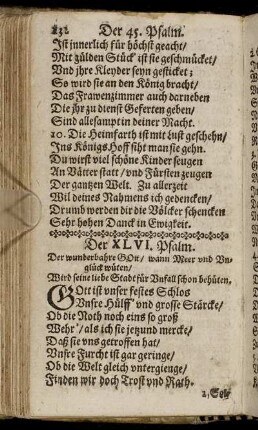 232 Der 45. Psalm.
Ist jnnerlich für höchst geacht/
Mit gülden Stück' ist sie geschmücket/
Vnd jhre Kleyder seyn gesticket;
So wird sie an den König bracht/
Das Frawenzimmer auch darneben
Die jhr zu dienst Geferten geben/
Sind allesamptin deiner Macht.
10. Die Heimfarth ist mit Lust geschehn/
Ins Königs Hoff siht man sie gehn.
Du wirst viel schöne Kinder zeugen
An Vätter statt/ vnd Fürsten zeugen
Der gantzen Welt. Zu allerzeit
Wil deines Nahmens ich gedencken/
Drumb werden dir die Völcker schencken
Sehr hohen Danck in Ewigkeit.
Der XLVI. Psalm.
Der wunderbahre GOtt/ wann Meer vnd Vn-
glück wüten/
Wird seine liebe Stadt für Vnfall schon behüten.
GOtt ist vnser festes Schlos
Vnsre Hülff' vnd grosse Stärcke/
Ob die Noth noch eins so groß
Wehr'/ als ich sie jetzund mercke/
Daß sie vns getroffen hat/
Vnsre Furcht ist gar geringe/
Ob die Welt gleich vntergienge/
Finden wir doch Trost vnd Rath.